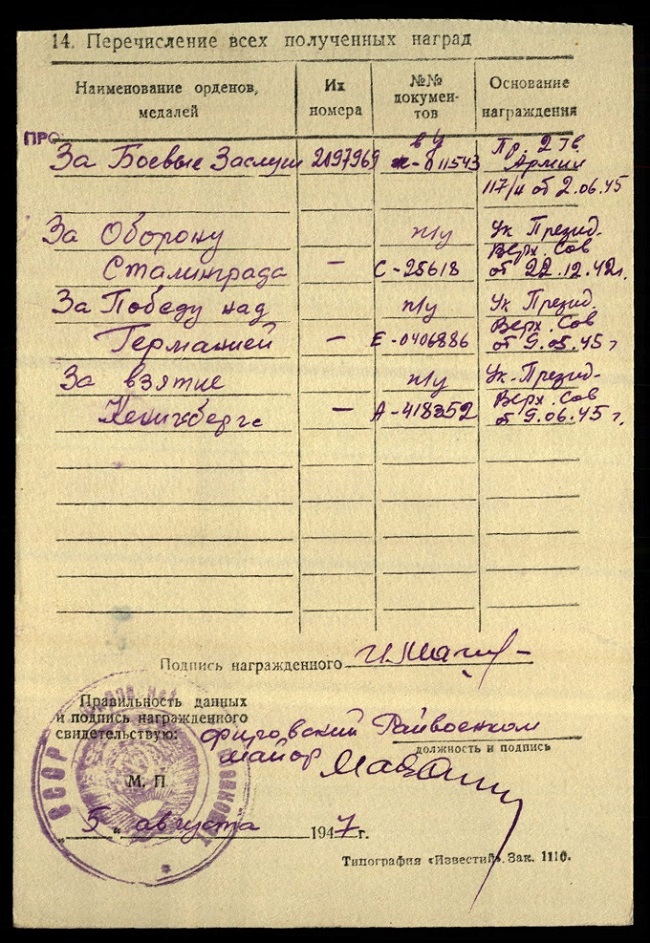 14. Перечисление всех полученных наград
Наименование орденов, медалей
Их номера
№№ документов
Основание награждения
ПРО
За Боевые Заслуги 2097969 011543 Пр. 2 Гв.
Армии
117/н от 2.06.45
За Оборону п/у Ук Презид.
Верх. Сов
Сталинграда – С-25618 от 22.12.42г.
За Победу над п/у Ук Презид.
Верх. Сов
Германией – Е-0406886 от 9.05.45г
За взятие п/у Ук. Презид.
Верх. Сов
Кенигсберга – А-418352 от 9.06.45г.
Подпись награжденного
Правильность данных
и подпись награжденного
свидетельствую:
Райвоенком
майор
должность и подпись
СССР
М. П
„5" августа 1947 г.
Типография «Известий». Зак. 1110.